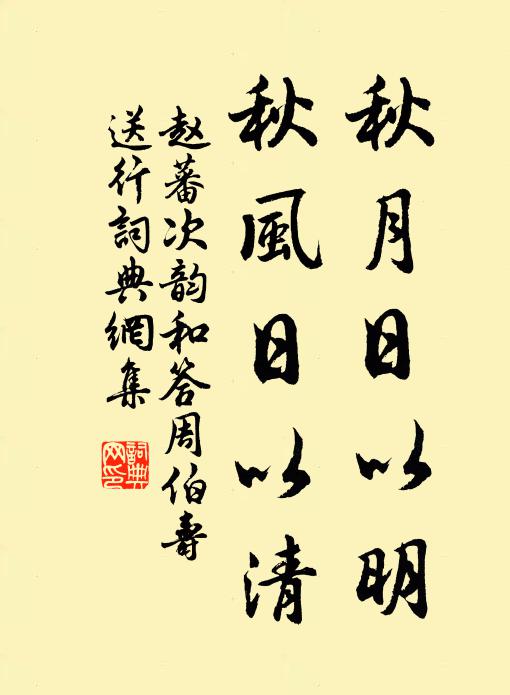 秋月日以明
秋風日以清
赵蕃次韵和答周伯壽
送行詞典網集
詞典
网印